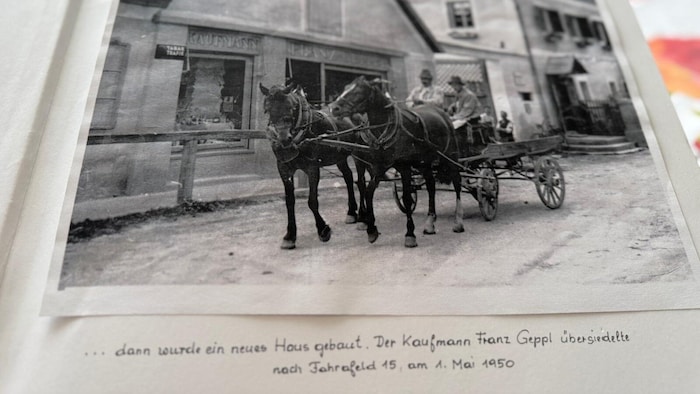 TABAK
TRAFIK
KAUFMANN
... dann wurde ein neues Haus gebaut. Der Kaufmann Franz Geppl übersiedelte
nach Fahrafeld 15, am 1. Mai 1950